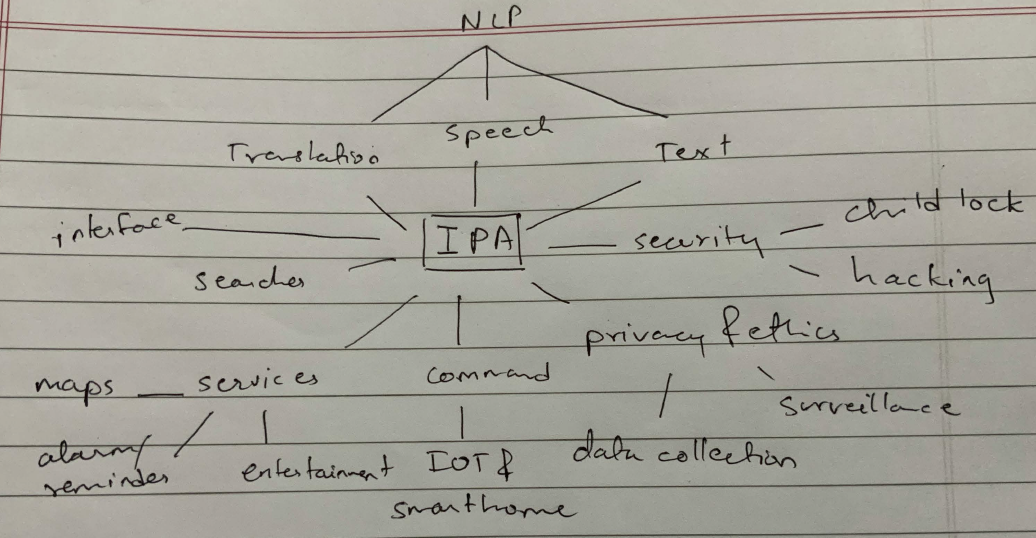 NLP
Translation
Speech
Text
interface
IPA
security
child lock
searches
hacking
privacy & ethics
maps
services
command
surveillance
alarm/
reminder
entertainment
IOT &
smarthome
data collection